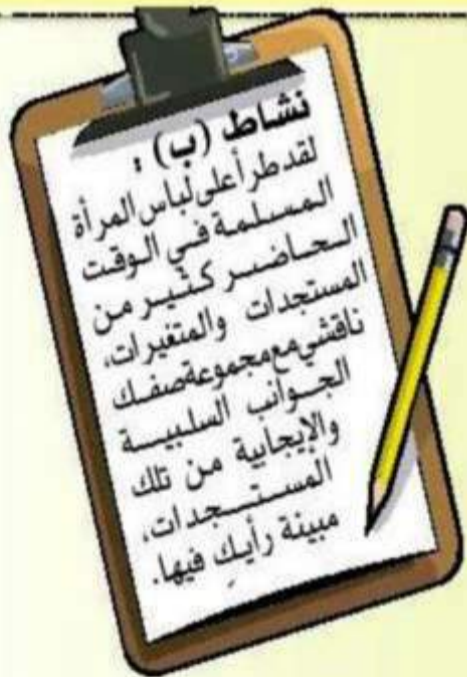 نشاط (ب) :
لقد طرأ على لباس المرأة
المسلمة في الوقت
الحاضر كثير من
المستجدات والمتغيرات،
ناقشي مع مجموعة صفك
الجوانب السلبية
والإيجابية من تلك
المستجدات،
مبينة رأيكِ فيها.